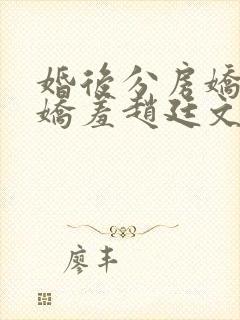 婚後分房嬌
嬌羞趙廷文
廖丰